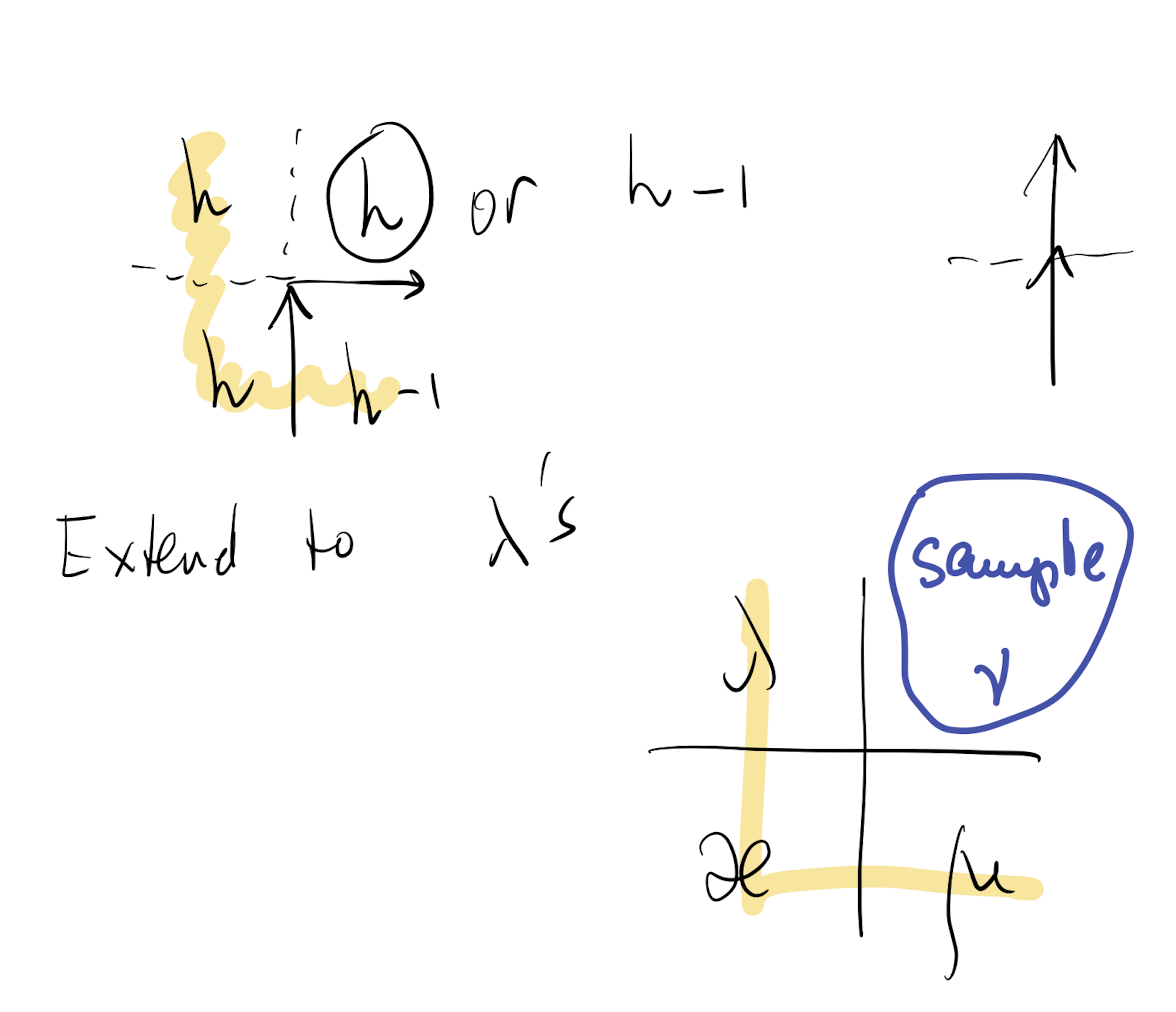 h h or h-1
h h-1
Extend to λ's
sample
λ ν
ϰ μ